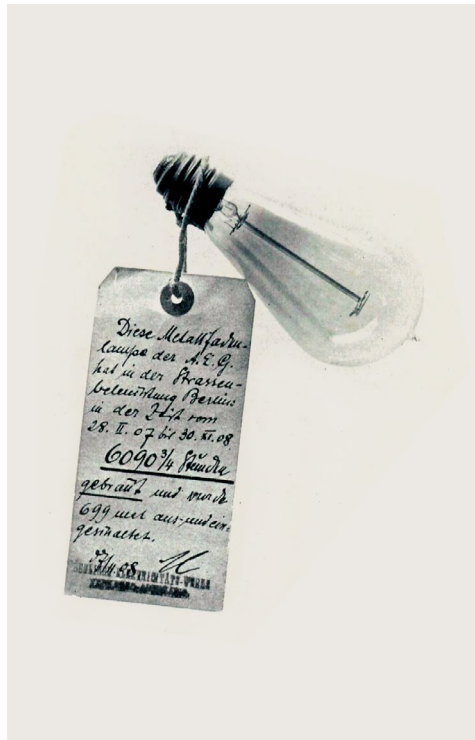 Diese Metallfaden-
lampe der A.E.G.
hat in der Strassen-
beleuchtung Berlins
in der Zeit vom
28. II. 07 bis 30. XI. 08
6090 3/4 Stunden
gebrannt und wurde
699 mal aus- und ein-
geschaltet.
08